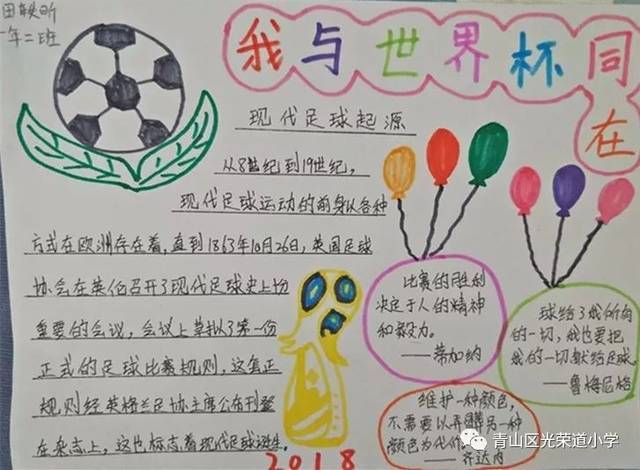 一年二班
我与世界杯同
在
现代足球起源
从8世纪到19世纪，
现代足球运动的前身以各种
方式在欧洲存在着，直到1863年10月26日，英国足球
协会在英伦召开了现代足球史上切
重要的会议，会议上草拟了第一份
正式的足球比赛规则，这套正
规则经英格兰足协主席公布刊登
在杂志上，这也标志着现代足球诞生。
比赛的胜利
决定于人的精神
和毅力。
——蒂加纳
球给了我所有
的一切，我也要把
我的一切献给足球。
——鲁梅尼格
维护一种颜色，
不需要以弄脏另一种
颜色为代价
——齐达内
2018
青山区光荣道小学